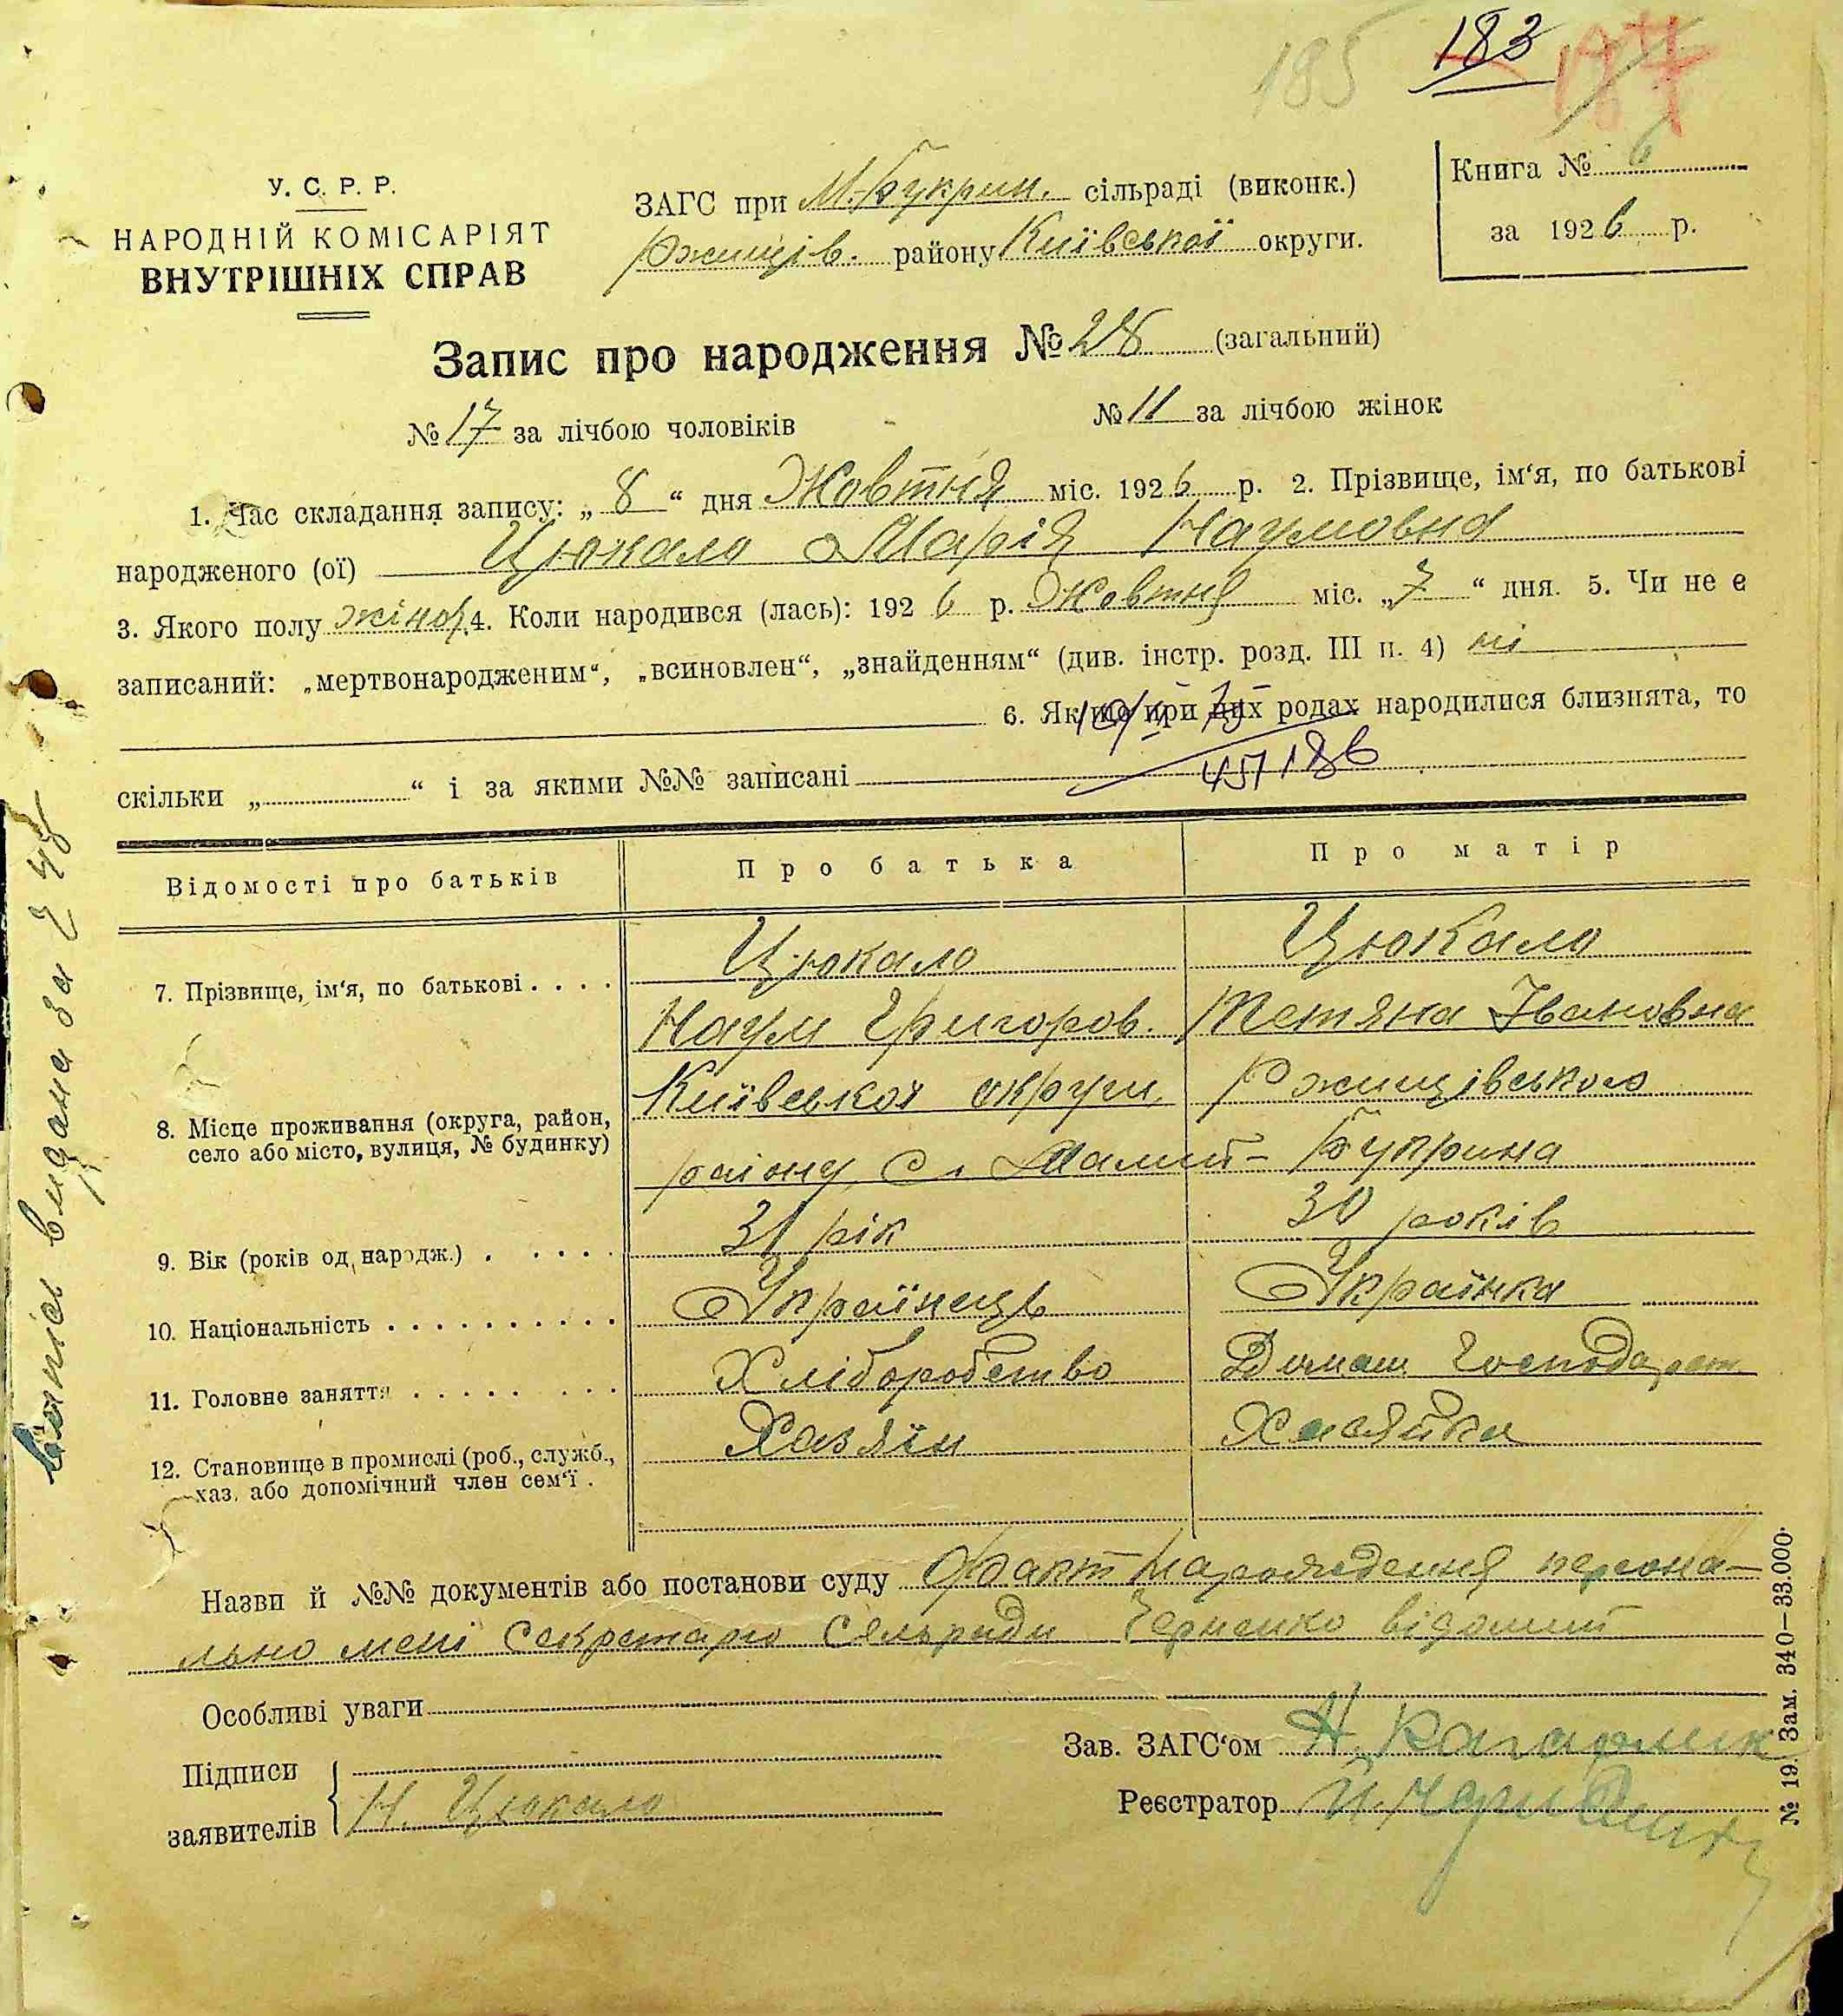 185 183
У. С. Р. Р.
НАРОДНІЙ КОМІСАРІЯТ
ВНУТРІШНІХ СПРАВ
ЗАГС при М-Букрин. сільраді (виконк.)
Ржищів. району Київської округи.
Книга № 6
за 1926 р.
Запис про народження № 28 (загальний)
№ 17 за лічбою чоловіків № 11 за лічбою жінок
1. Час складання запису: „ 8 “ дня Жовтня міс. 1926 р. 2. Прізвище, ім‘я, по батькові
народженого (ої) Цюкало Марія Наумовна
3. Якого полу жіноч. 4. Коли народився (лась): 1926 р. Жовтня міс. „ 7 “ дня. 5. Чи не є
записаний: „мертвонародженим“, „всиновлен“, „знайденням“ (див. інстр. розд. III п. 4) ні
6. Якщо при цих родах народилися близнята, то
скільки „ “ і за якими №№ записані
Відомості про батьків Про батька Про матір
Цюкало Цюкало
7. Прізвище, ім‘я, по батькові
Наум Григоров. Тетяна Івановна
Київської округи, Ржищівського
8. Місце проживання (округа, район,
село або місто, вулиця, № будинку)
району С. Малий-Букрина
9. Вік (років од народж.) 31 рік 30 років
10. Національність Українець Українка
11. Головне заняття Хліборобство Домаш. Господарст
12. Становище в промислі (роб., служб.,
хаз. або допомічний член сем‘ї. Хазяїн Хасяйка
Назви й №№ документів або постанови суду Факт народження персона-
льно мені Секретарю Сельради Черненко відомий
Особливі уваги
Підписи
заявителів Н. Цюкало
Зав. ЗАГС‘ом
Реєстратор
№ 19. Зам. 340—33.000.
Випись видана за № 48